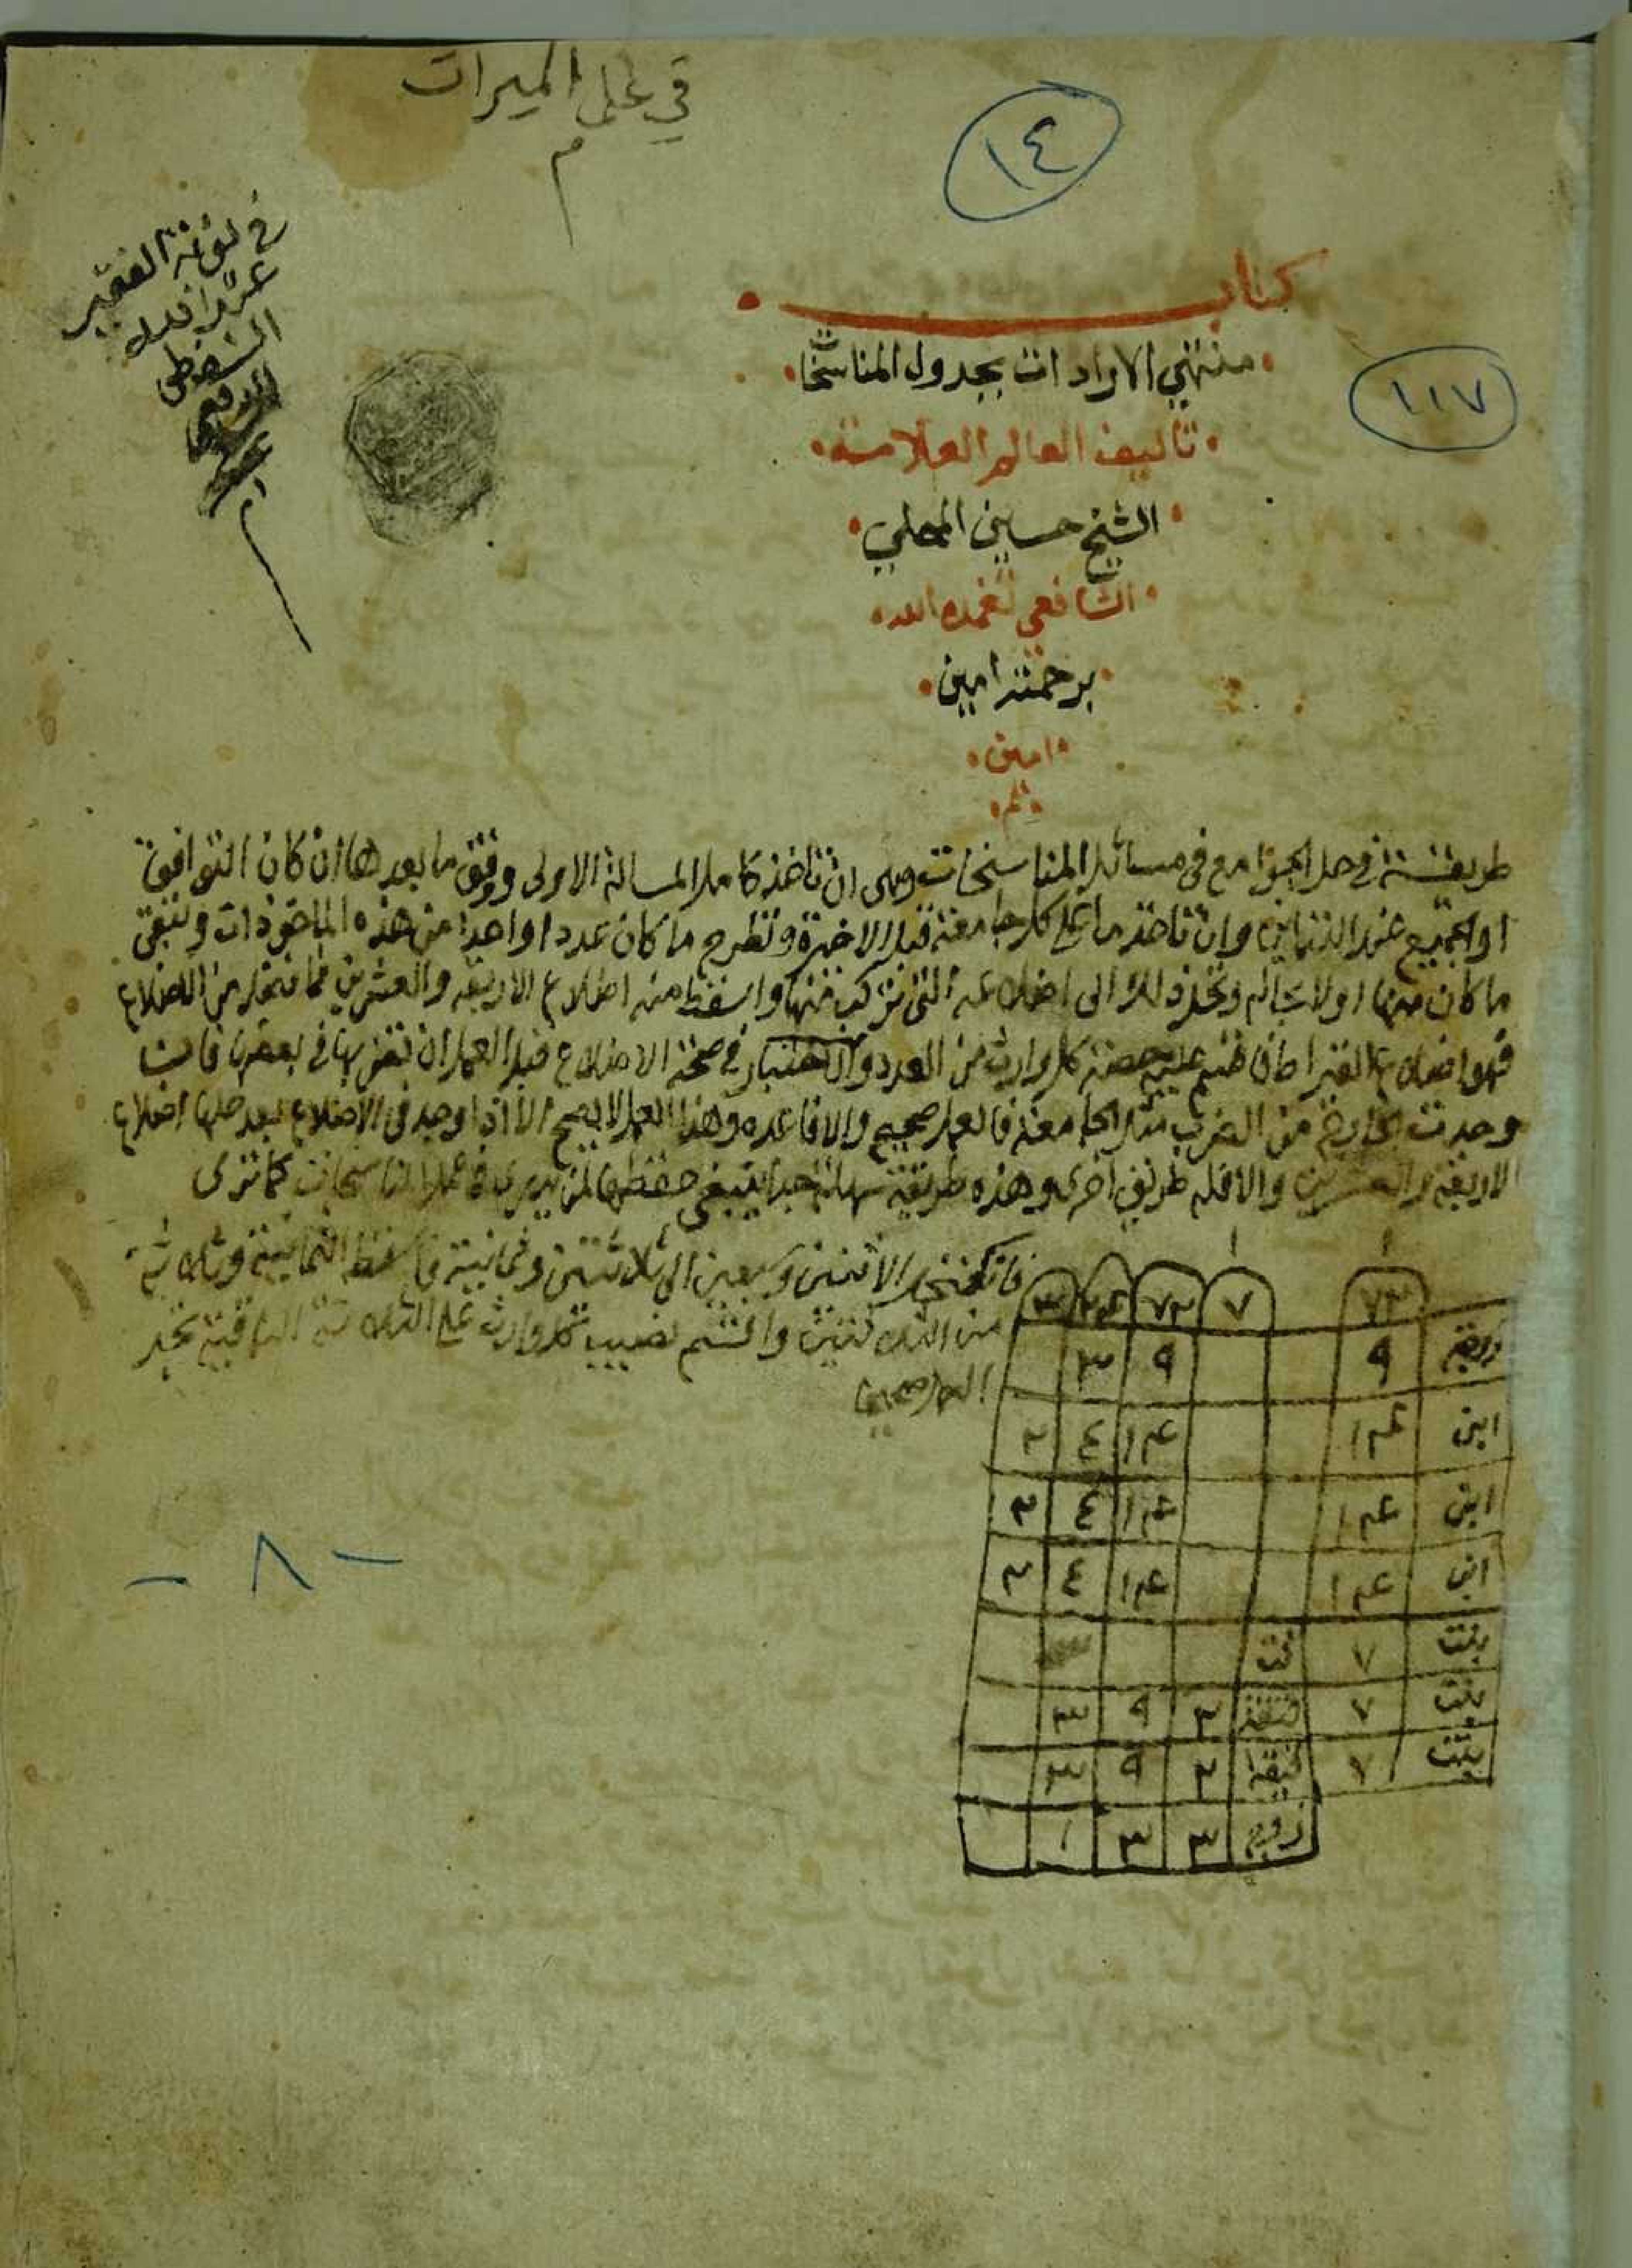 في علم الميراث
م
١٤
١١٧
في نوبة الفقير
كتاب
منتهي الارادات بجدول المناسخات
تاليف العالم العلامة
الشيخ حسين المحلي
الشافعي تغمده الله
برحمته امين
امين
تم
طريقة في حل الجوامع في مسائل المناسخات وهى ان تاخذ كامل المسالة الاولى ووفق ما بعدها ان كان التوافق
او الجميع عند التباين وان تاخذ ما على كل جامعة قبل الاخيرة وتطرح ما كان عددا واحدا من هذه الماخوذات وتبقى
ما كان منها اولا سالم وتحل ذلك الى اضلاعه التى تركب منها واسقط منه اضلاع الاربعة والعشرين فما فضل من الاضلاع
فهو اضلاع القيراط فاقسم عليه حصة كل وارث من العدد والاختبار في صحة الاضلاع قبل العمل ان تضربها في بعضها فان
وجدت الخارج من الضرب مثل الجامعة فالعمل صحيح والا فاعده وهذا العمل لا يصح الا اذا وجد في الاضلاع بعد حلها اضلاع
الاربعة والعشرين والا فله طريق اخرى وهذه طريقة سهلة جدا ينبغي حفظها لمن يريد عمل المناسخات كما ترى
فانك تحل الاثنين وسبعين الى ثلاثتين وثمانية فاسقط الثمانية وثلاثة
من الثلاثتين واقسم نصيب كل وارث على الثلاثة الباقية تجد
العمل صحيحا
٧٢ ٧ ٧٢ ٢٤ ٣
زوجة ٩ ٩ ٣
ابن ١٤ ١٤ ٤ ٢
ابن ١٤ ١٤ ٤ ٢
ابن ١٤ ١٤ ٤ ٢
بنت ٧ تت
بنت ٧ شقيقة ٢ ٩ ٣
بنت ٧ شقيقة ٢ ٩ ٣
زوج ٣ ٣ ١
- ٨ -